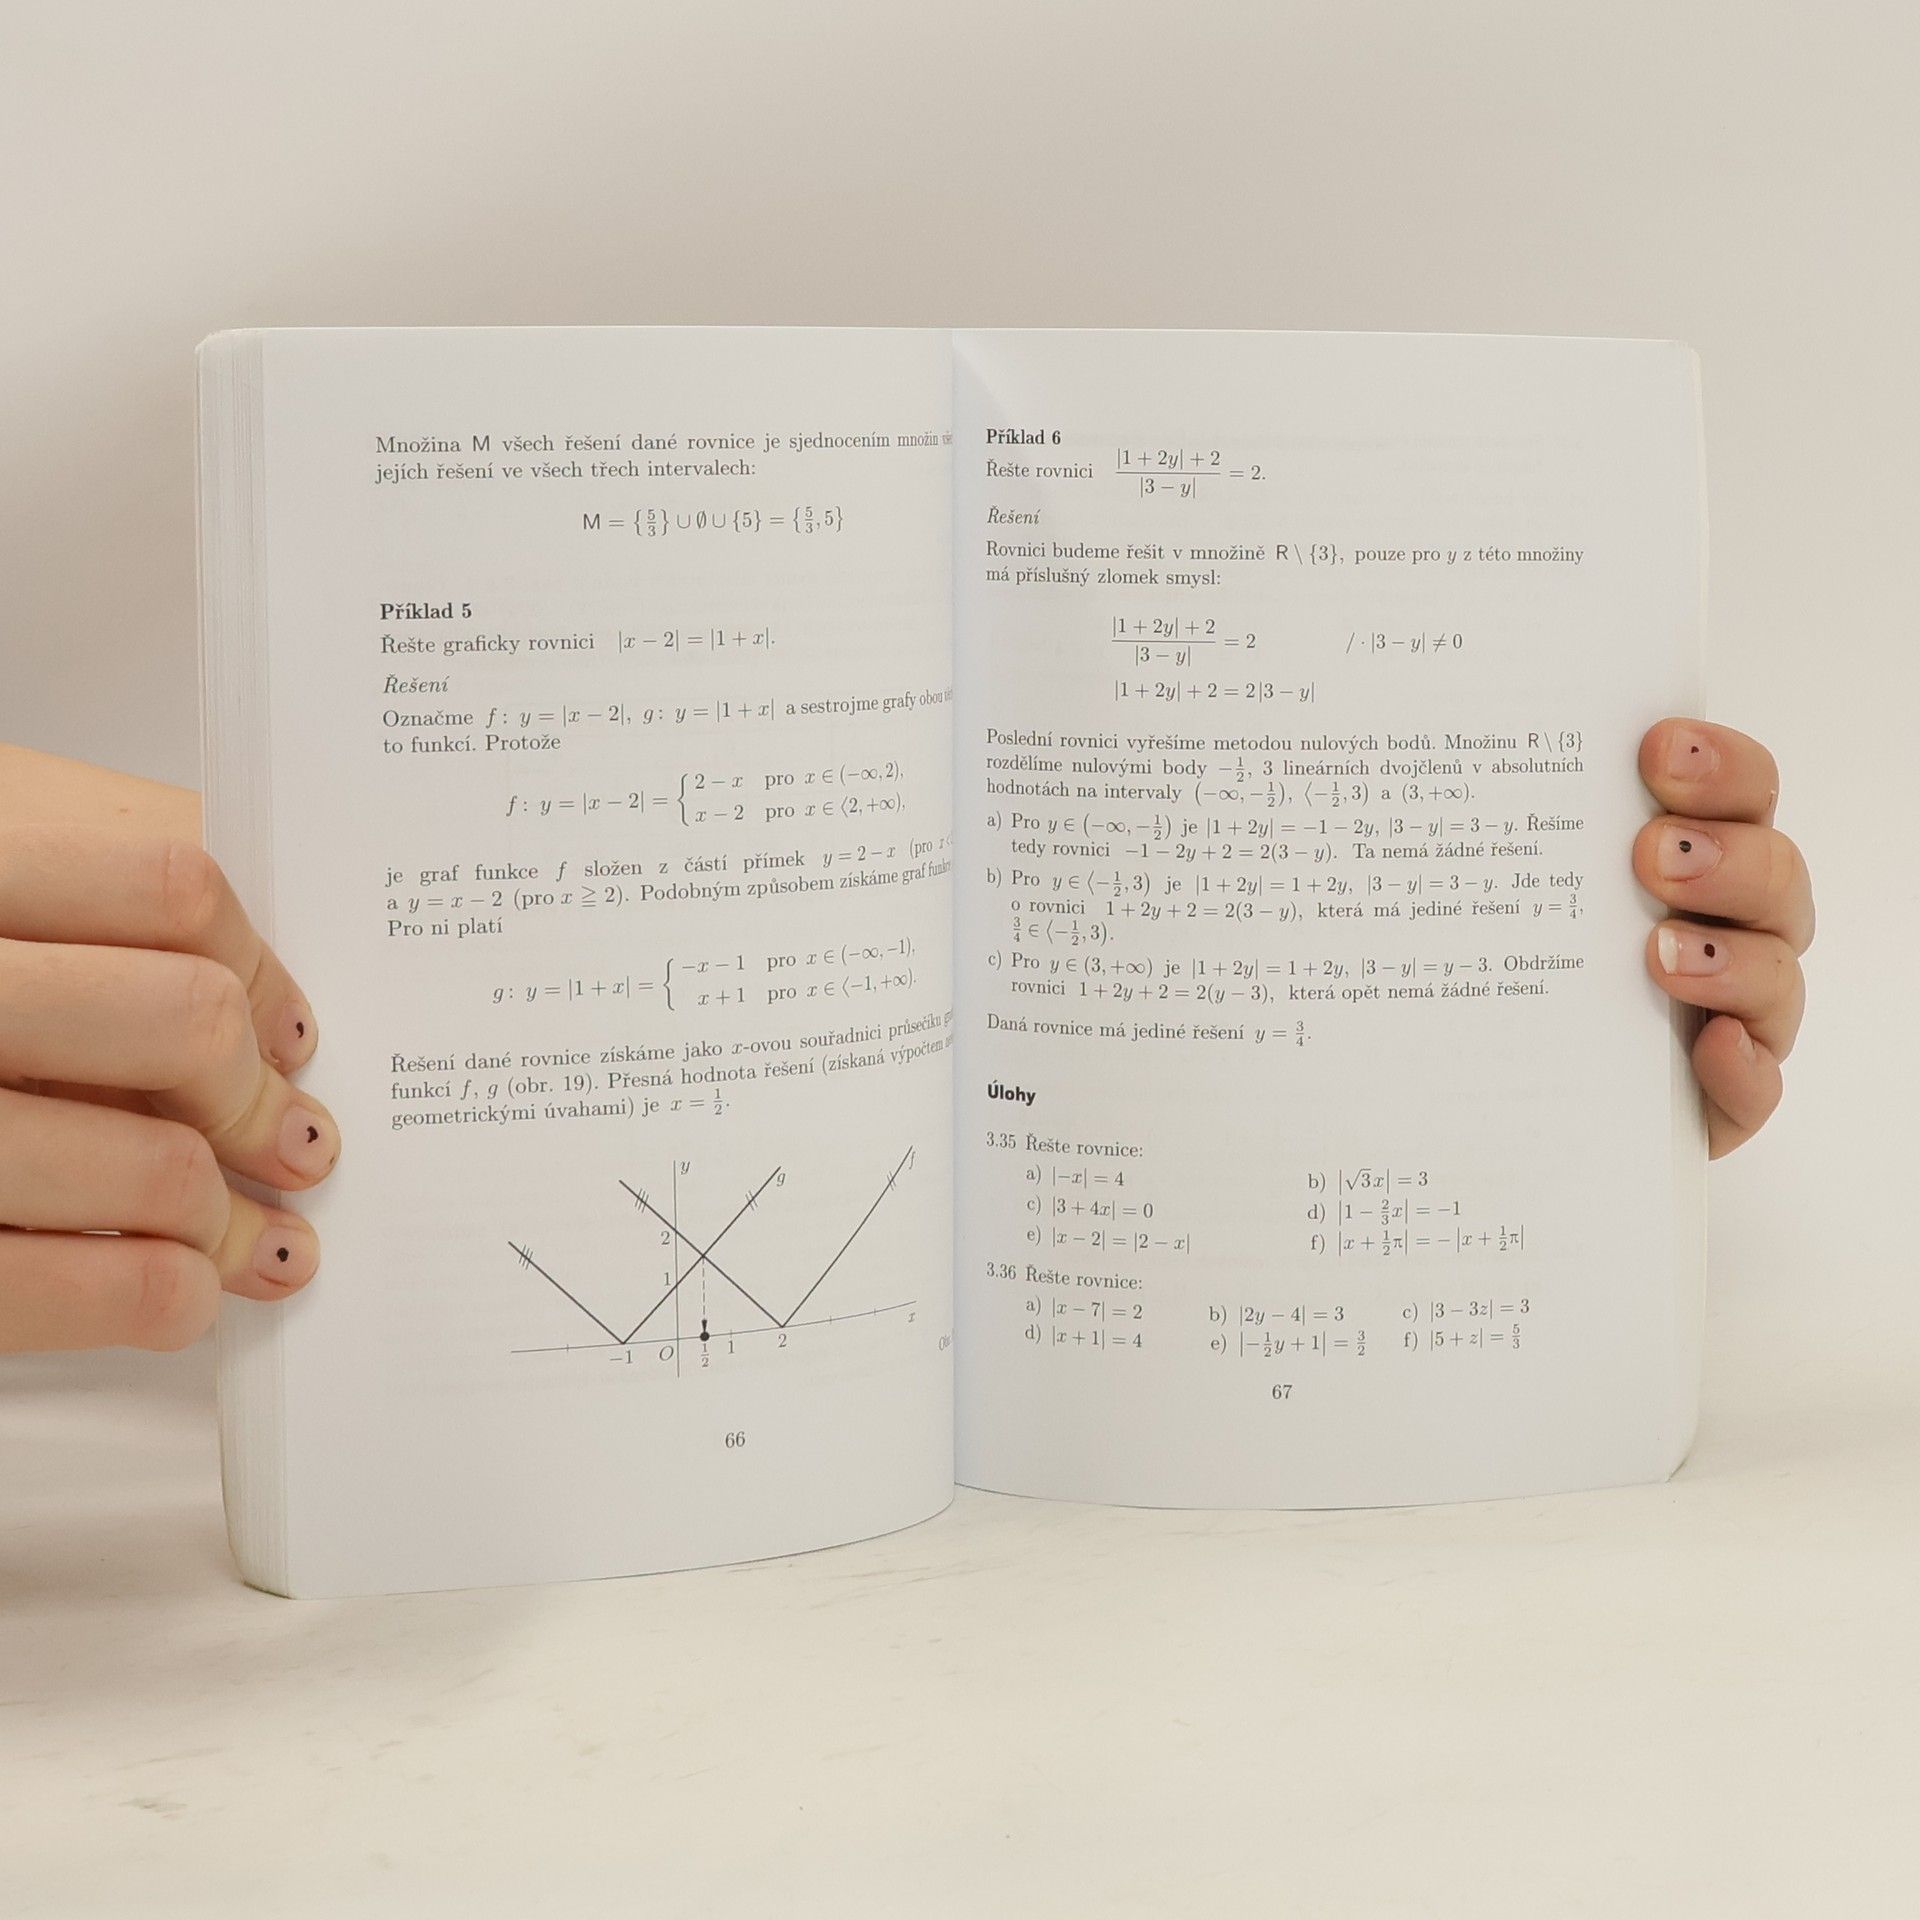 Množina M všech řešení dané rovnice je sjednocením množin
jejích řešení ve všech třech intervalech:
M = {5/3} ∪ ∅ ∪ {5} = {5/3, 5}
Příklad 5
Řešte graficky rovnici |x − 2| = |1 + x|.
Řešení
Označme f: y = |x − 2|, g: y = |1 + x| a sestrojme grafy obou
to funkcí. Protože
f: y = |x − 2| = { 2 − x pro x ∈ (−∞, 2),
x − 2 pro x ∈ ⟨2, +∞),
je graf funkce f složen z částí přímek y = 2 − x (pro x
a y = x − 2 (pro x ≧ 2). Podobným způsobem získáme graf
Pro ni platí
g: y = |1 + x| = { −x − 1 pro x ∈ (−∞, −1),
x + 1 pro x ∈ ⟨−1, +∞).
Řešení dané rovnice získáme jako x-ovou souřadnici průsečíku
funkcí f, g (obr. 19). Přesná hodnota řešení (získaná výpočtem
geometrickými úvahami) je x = 1/2.
y
g
f
2
1
x
−1 O 1/2 1 2
66
Příklad 6
Řešte rovnici (|1 + 2y| + 2)/|3 − y| = 2.
Řešení
Rovnici budeme řešit v množině R \ {3}, pouze pro y z této množiny
má příslušný zlomek smysl:
(|1 + 2y| + 2)/|3 − y| = 2 / · |3 − y| ≠ 0
|1 + 2y| + 2 = 2|3 − y|
Poslední rovnici vyřešíme metodou nulových bodů. Množinu R \ {3}
rozdělíme nulovými body −1/2, 3 lineárních dvojčlenů v absolutních
hodnotách na intervaly (−∞, −1/2), ⟨−1/2, 3) a (3, +∞).
a) Pro y ∈ (−∞, −1/2) je |1 + 2y| = −1 − 2y, |3 − y| = 3 − y. Řešíme
tedy rovnici −1 − 2y + 2 = 2(3 − y). Ta nemá žádné řešení.
b) Pro y ∈ ⟨−1/2, 3) je |1 + 2y| = 1 + 2y, |3 − y| = 3 − y. Jde tedy
o rovnici 1 + 2y + 2 = 2(3 − y), která má jediné řešení y = 3/4,
3/4 ∈ ⟨−1/2, 3).
c) Pro y ∈ (3, +∞) je |1 + 2y| = 1 + 2y, |3 − y| = y − 3. Obdržíme
rovnici 1 + 2y + 2 = 2(y − 3), která opět nemá žádné řešení.
Daná rovnice má jediné řešení y = 3/4.
Úlohy
3.35 Řešte rovnice:
a) |−x| = 4 b) |√3x| = 3
c) |3 + 4x| = 0 d) |1 − 2/3x| = −1
e) |x − 2| = |2 − x| f) |x + 1/2π| = −|x + 1/2π|
3.36 Řešte rovnice:
a) |x − 7| = 2 b) |2y − 4| = 3 c) |3 − 3z| = 3
d) |x + 1| = 4 e) |−1/2y + 1| = 3/2 f) |5 + z| = 5/3
67